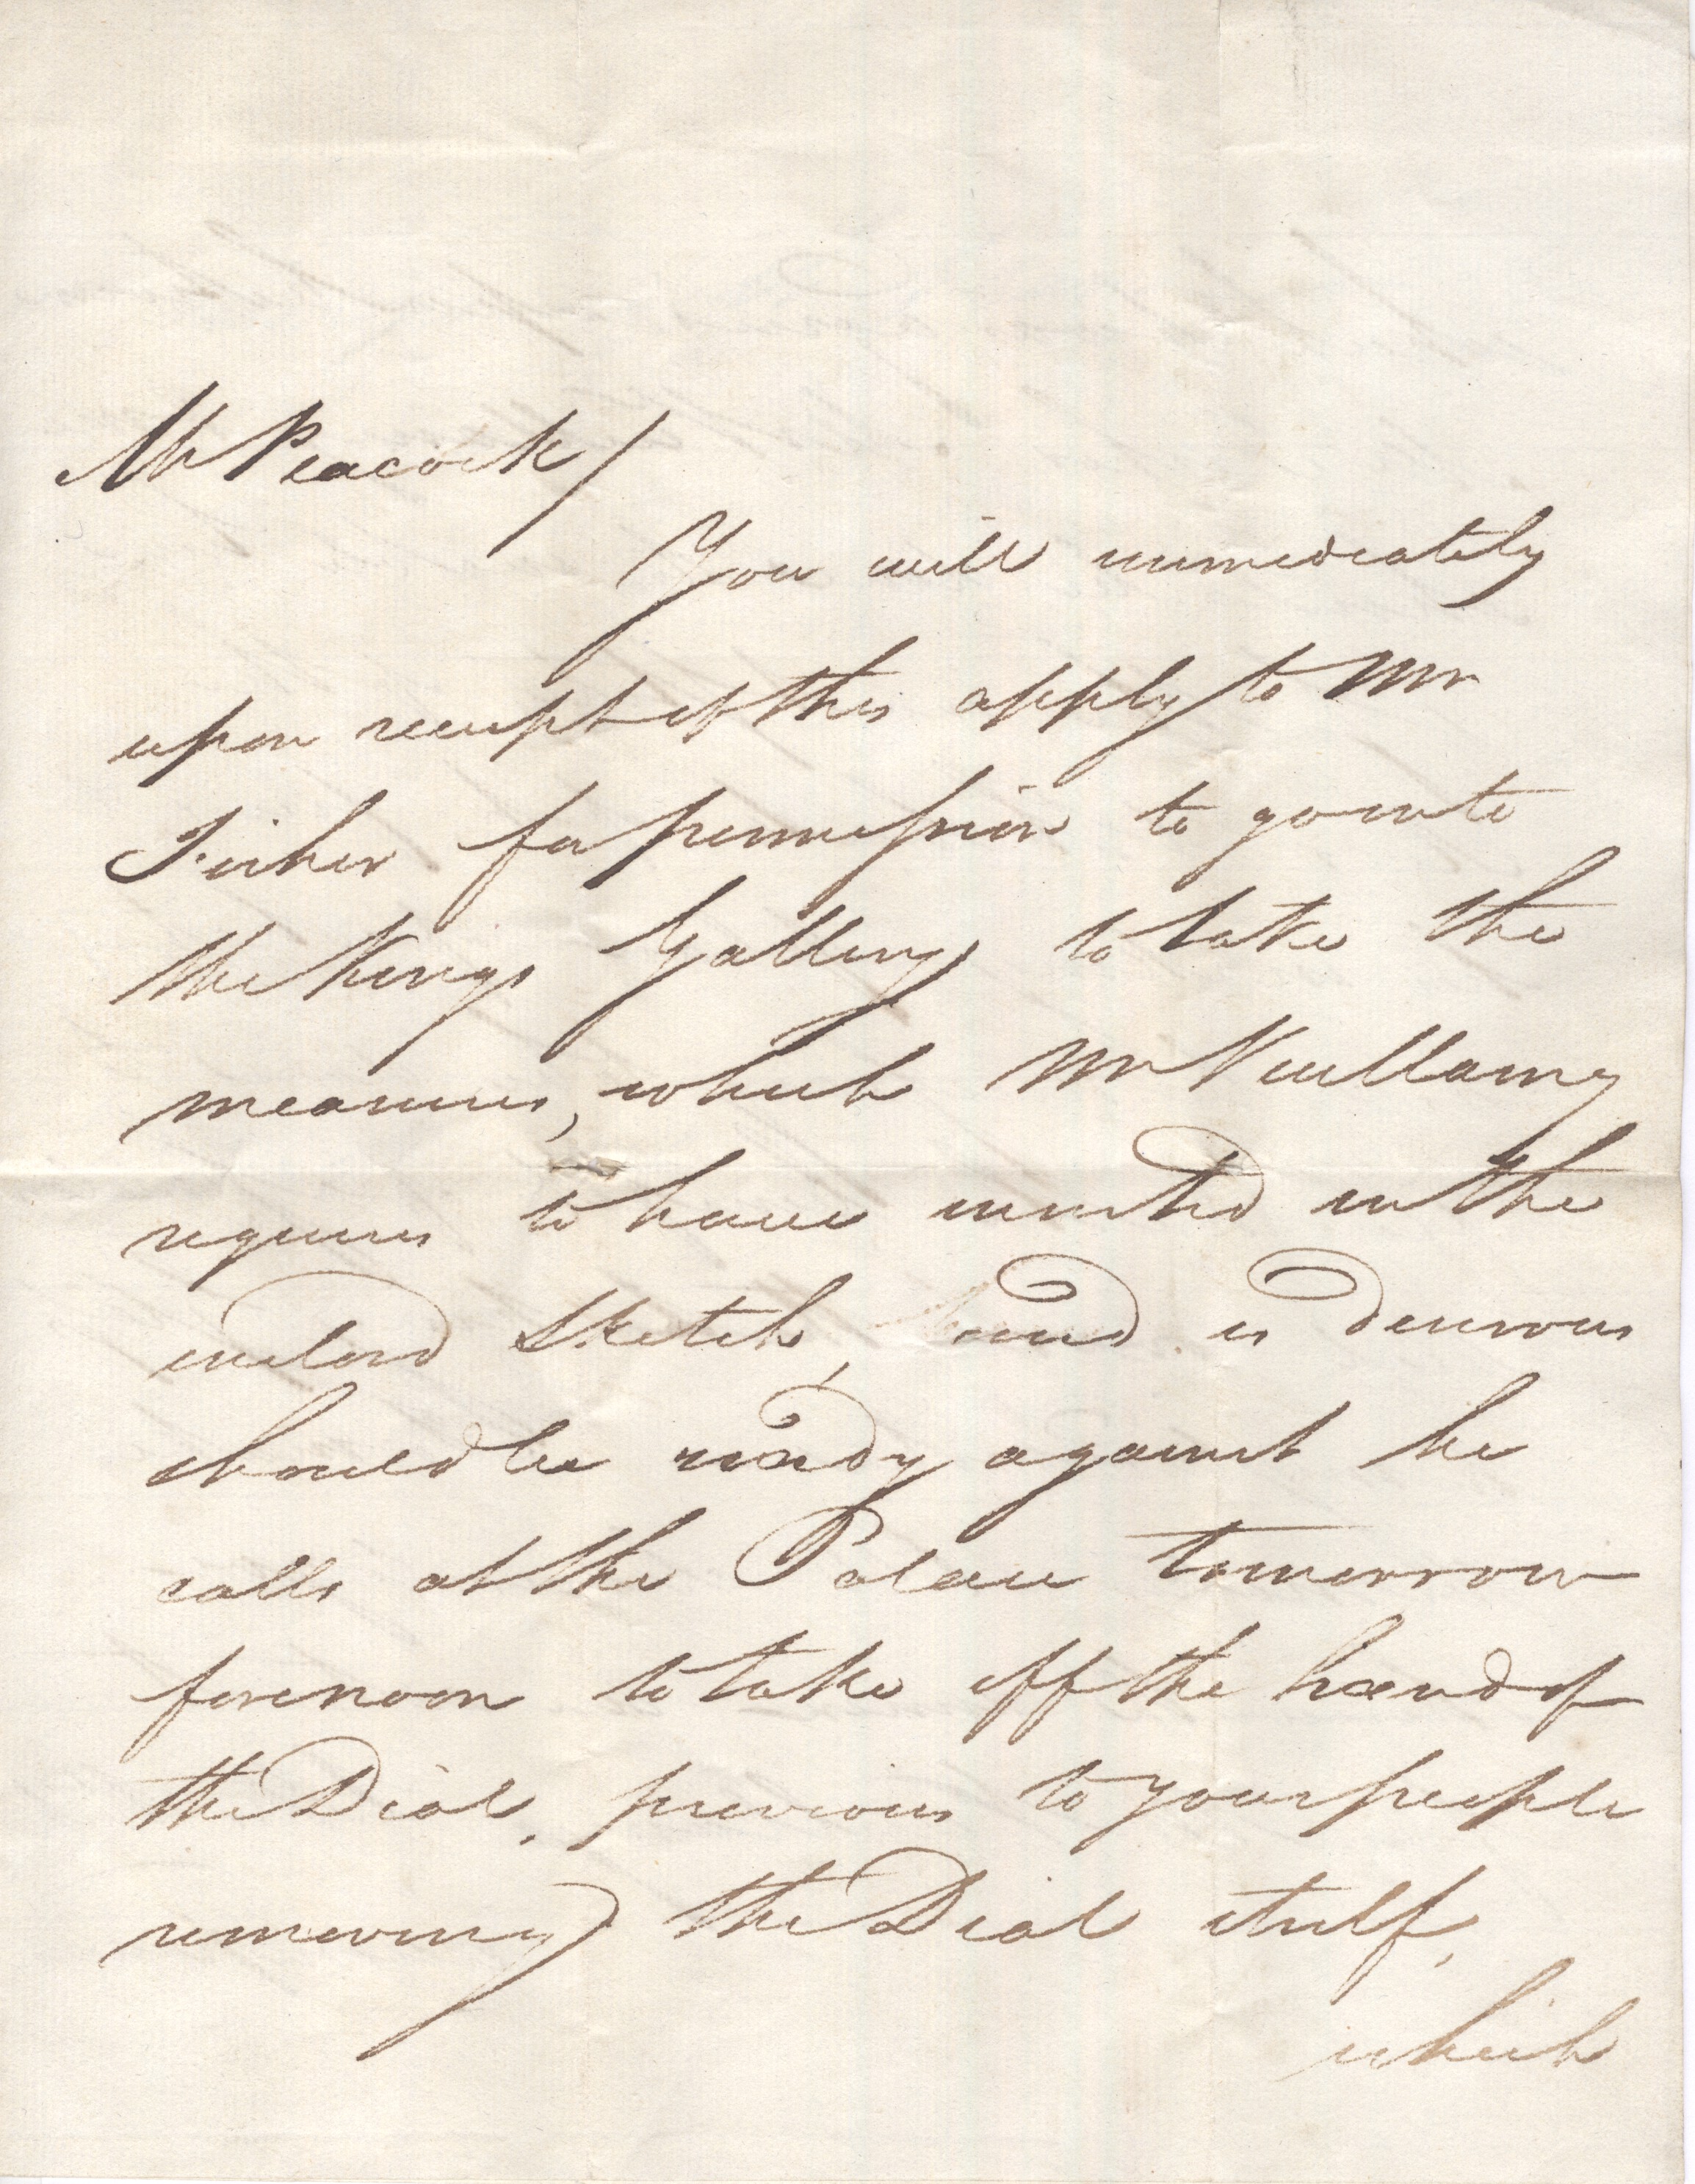 Mr Peacock/
You will immediately
upon receipt of this apply to Mr
for permission to go into
the Kings Gallery, to take the
measures, which Mr Vulliamy
requires to have inserted in the
inclosd Sketch, and is desirous
should be ready against he
calls at the Palace tomorrow
forenoon to take off the hand of
the Dial, previous to your people
removing the Dial itself,
which